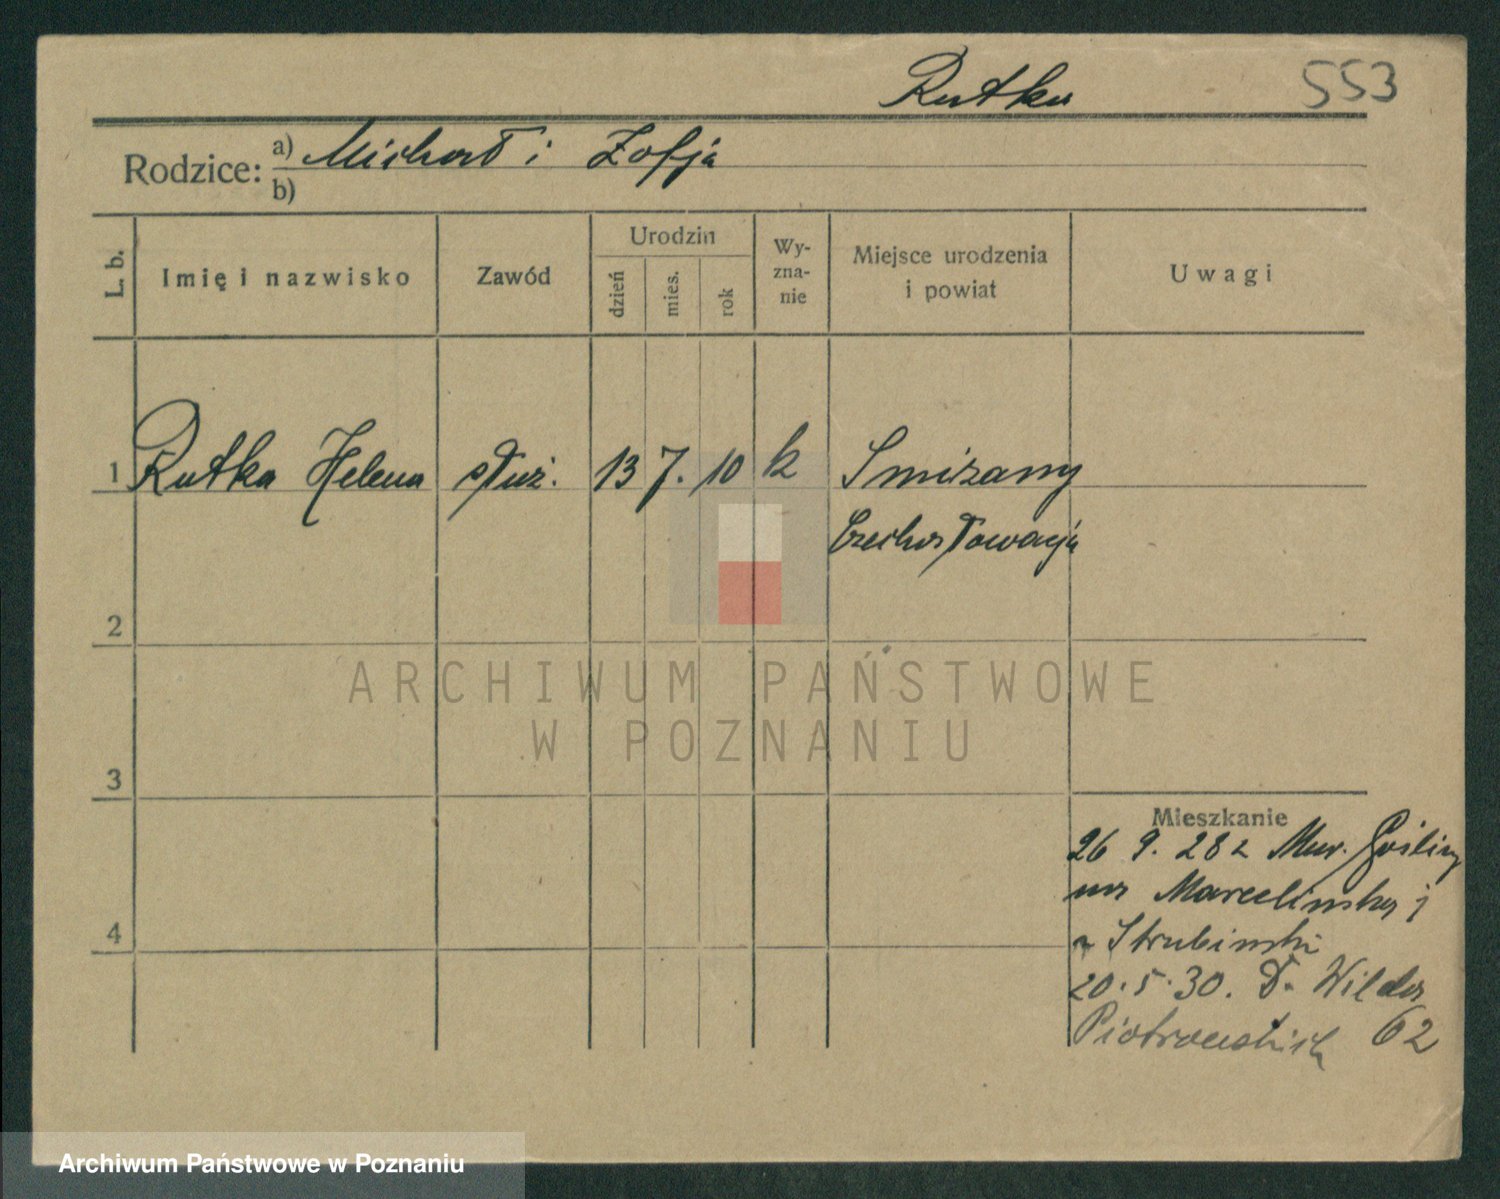 Rutka 553
Rodzice: a) Michał i Zofja
b)
L. b. Imię i nazwisko Zawód Urodzin dzień mies. rok Wyznanie Miejsce urodzenia i powiat Uwagi
1 Rutka Helena służ. 13 7. 10 k Smiżany
Czechosłowacja
2
ARCHIWUM PAŃSTWOWE
W POZNANIU
3
Mieszkanie
26 9. 28 z Mur. Gośliny
na Marcelińska
Strubiński
4
20.5.30. D. Wilda
62
Archiwum Państwowe w Poznaniu